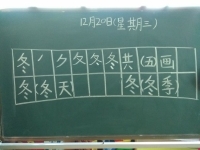 12月20日(星期三)
冬丿ク夂冬冬共(五)画
冬(冬天)冬(冬季)